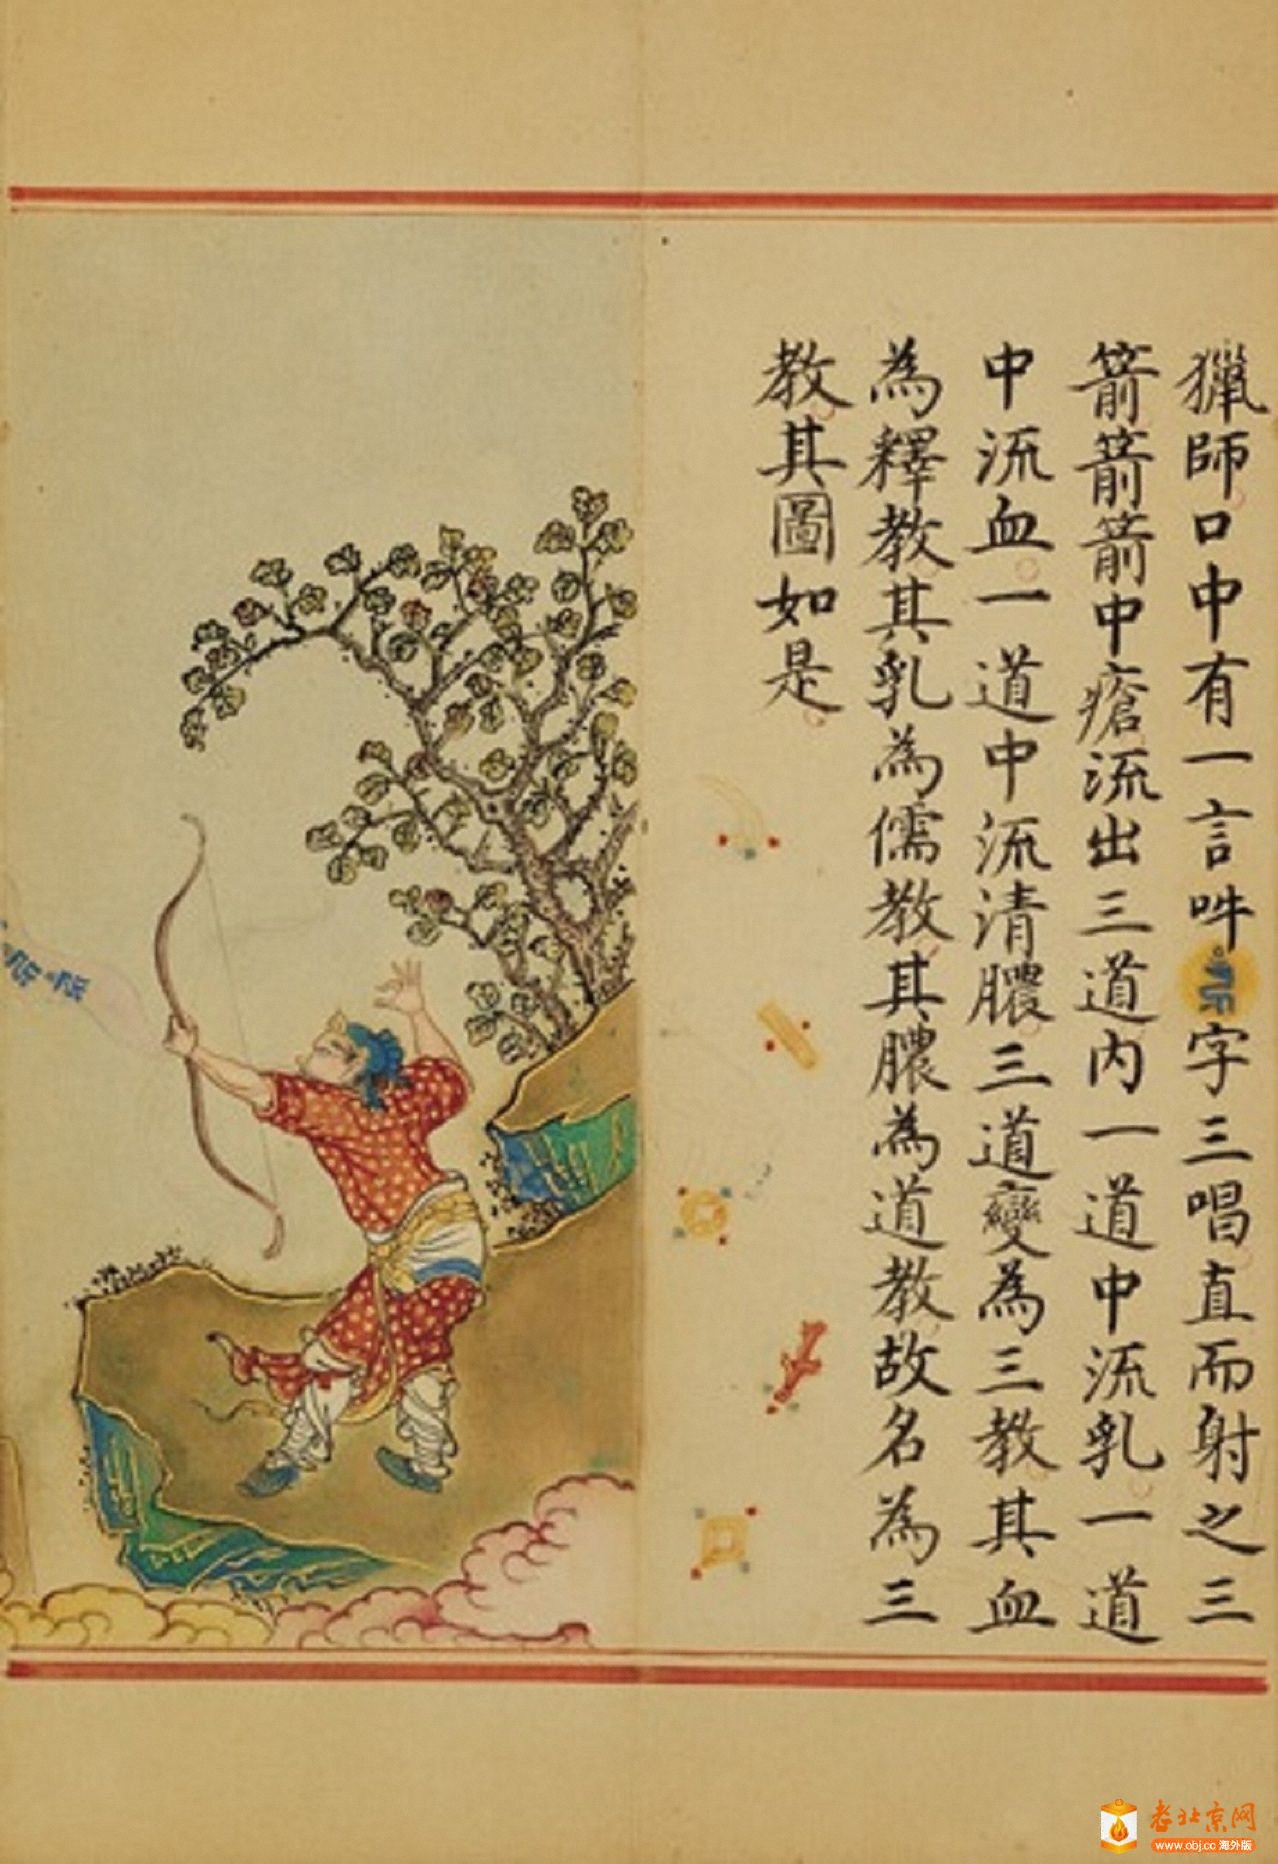 獵師口中有一言吽字三唱直而射之三
箭箭箭中瘡流出三道内一道中流乳一道
中流血一道中流清膿三道變為三教其血
為釋教其乳為儒教其膿為道教故名為三
教其圖如是
老北京网
www.obj.cc 海外版